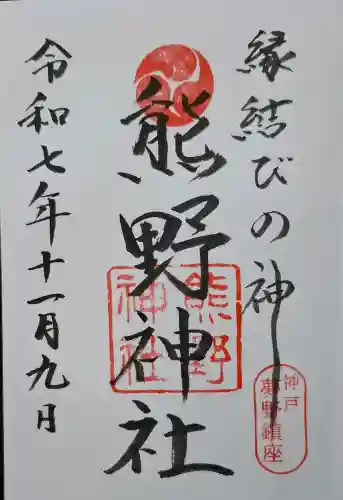 縁結びの神
熊野神社
令和七年十一月九日
熊野
神社
神戸
夢野鎮座